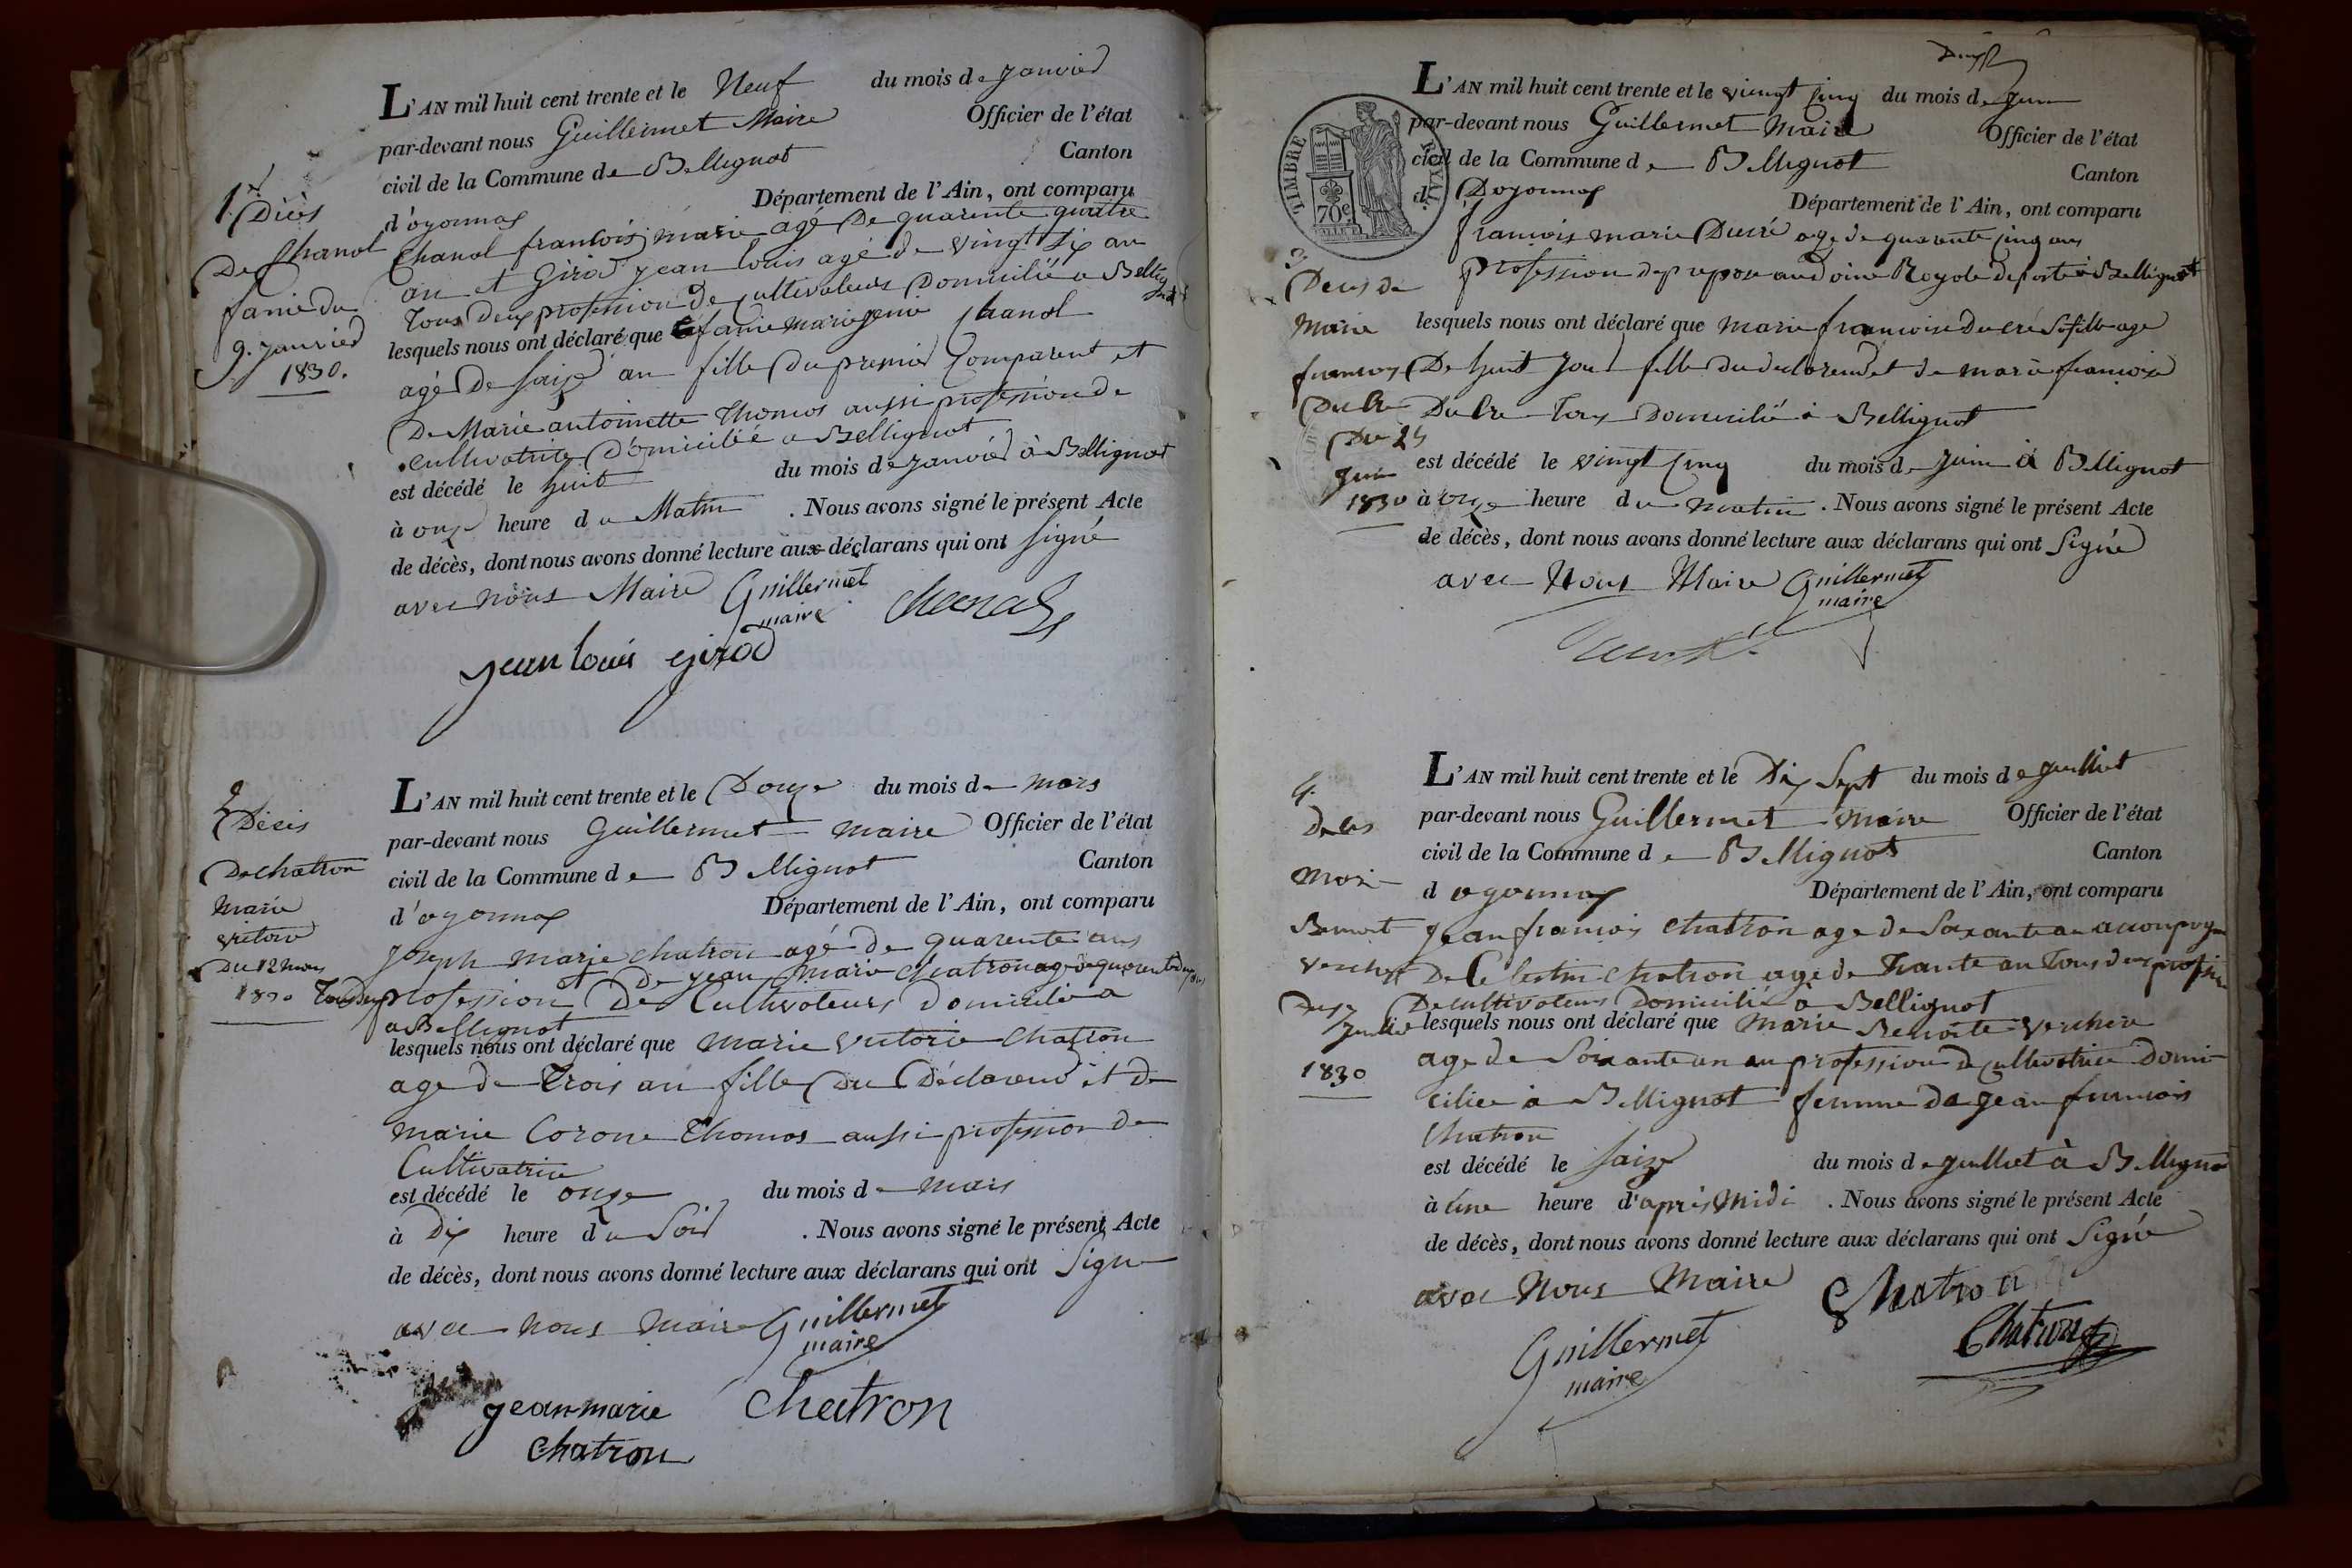 L'AN mil huit cent trente et le Neuf du mois de janvier
par-devant nous Guillermet Maire Officier de l'état
civil de la Commune de Bellignat Canton
d'oyonnax Département de l'Ain, ont comparu
Chanal francois marie agé De quarente quatre
an et Girod jean louis agé de vingt six an
tous deux profession de cultivateurs Domicilié a Bellignat
lesquels nous ont déclaré que fanie marie Chanal
agé De saize an fille Du premier Comparent et
De Marie antoinette Thomas aussi profession de
cultivatrite Domiciliée a Bellignat
est décédé le huit du mois de janvier à Bellignat
à onze heure du Matin . Nous avons signé le présent Acte
de décès, dont nous avons donné lecture aux déclarans qui ont signé
avec nous Maire Guillermet
maire Chanal
jean louis girod
1er
Décès
De Chanal
fanie du
9. janvier
1830.
L'AN mil huit cent trente et le Douze du mois de mars
par-devant nous Guillermet maire Officier de l'état
civil de la Commune de Bellignat Canton
d'oyonnax Département de l'Ain, ont comparu
joseph marie chatron agé de quarente ans
et de jean marie chatron agé de quarente deux ans
Tous deux profession De Cultivateurs domicilié a
a Bellignat
lesquels nous ont déclaré que marie victoire chatron
age de trois an fille Du Déclarend et De
marie Corone Thomas aussi profession De
Cultivatrice
est décédé le onze du mois de mars
à Dix heure du Soir . Nous avons signé le présent Acte
de décès, dont nous avons donné lecture aux déclarans qui ont Signe
avec nous maire Guillermet
maire
jean-marie chatron
chatron
2
Décès
De chatron
marie
victoire
Du 12 mars
1830
L'AN mil huit cent trente et le viengt cinq du mois de juin
par-devant nous Guillermet maire Officier de l'état
civil de la Commune de Bellignat Canton
d Doyonnax Département de l'Ain, ont comparu
francois marie Ducré age de quarante cinq ans
profession de prepose au doine Royale de poste à Bellignat
lesquels nous ont déclaré que marie francoise Ducré sa fille age
De huit jour fille du declarend et de marie francoise
Dubre tous Domicilié à Bellignat
est décédé le vingt cinq du mois de juin à Bellignat
à onze heure du matin . Nous avons signé le présent Acte
de décès, dont nous avons donné lecture aux déclarans qui ont Signé
avec Nous Maire Guillermet
maire
TIMBRE ROYAL
70c
3
Deces de
Marie
francois
Du 25
juin
1830
L'AN mil huit cent trente et le Dix Sept du mois de juilliet
par-devant nous Guillermet maire Officier de l'état
civil de la Commune de Bellignat Canton
d oyonnax Département de l'Ain, ont comparu
jean francois chatron age de Soixante an accompogne
De Celestin chatron age de trante an tous deux profession
De cultivateurs Domicilié à Bellignat
lesquels nous ont déclaré que marie Benoite Verchere
age de Soixante un an profession de cultivatrice domi
ciliée à Bellignat femme de jean francois
Chatron
est décédé le saize du mois de juilliet à Bellignat
à une heure d'après midi . Nous avons signé le présent Acte
de décès, dont nous avons donné lecture aux déclarans qui ont Signé
avec Nous Maire Chatron
Guillermet Chatron
maire
4.
Deces
Mari
Benoit
1830